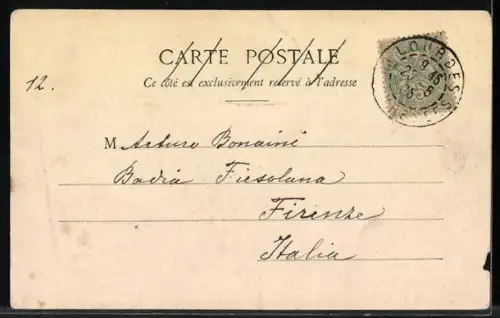 CARTE POSTALE
Ce côté est exclusivement réservé à l'adresse
12.
LOURDES
M Arturo Bonaini
Badia Fiesolana
Firenze
Italia